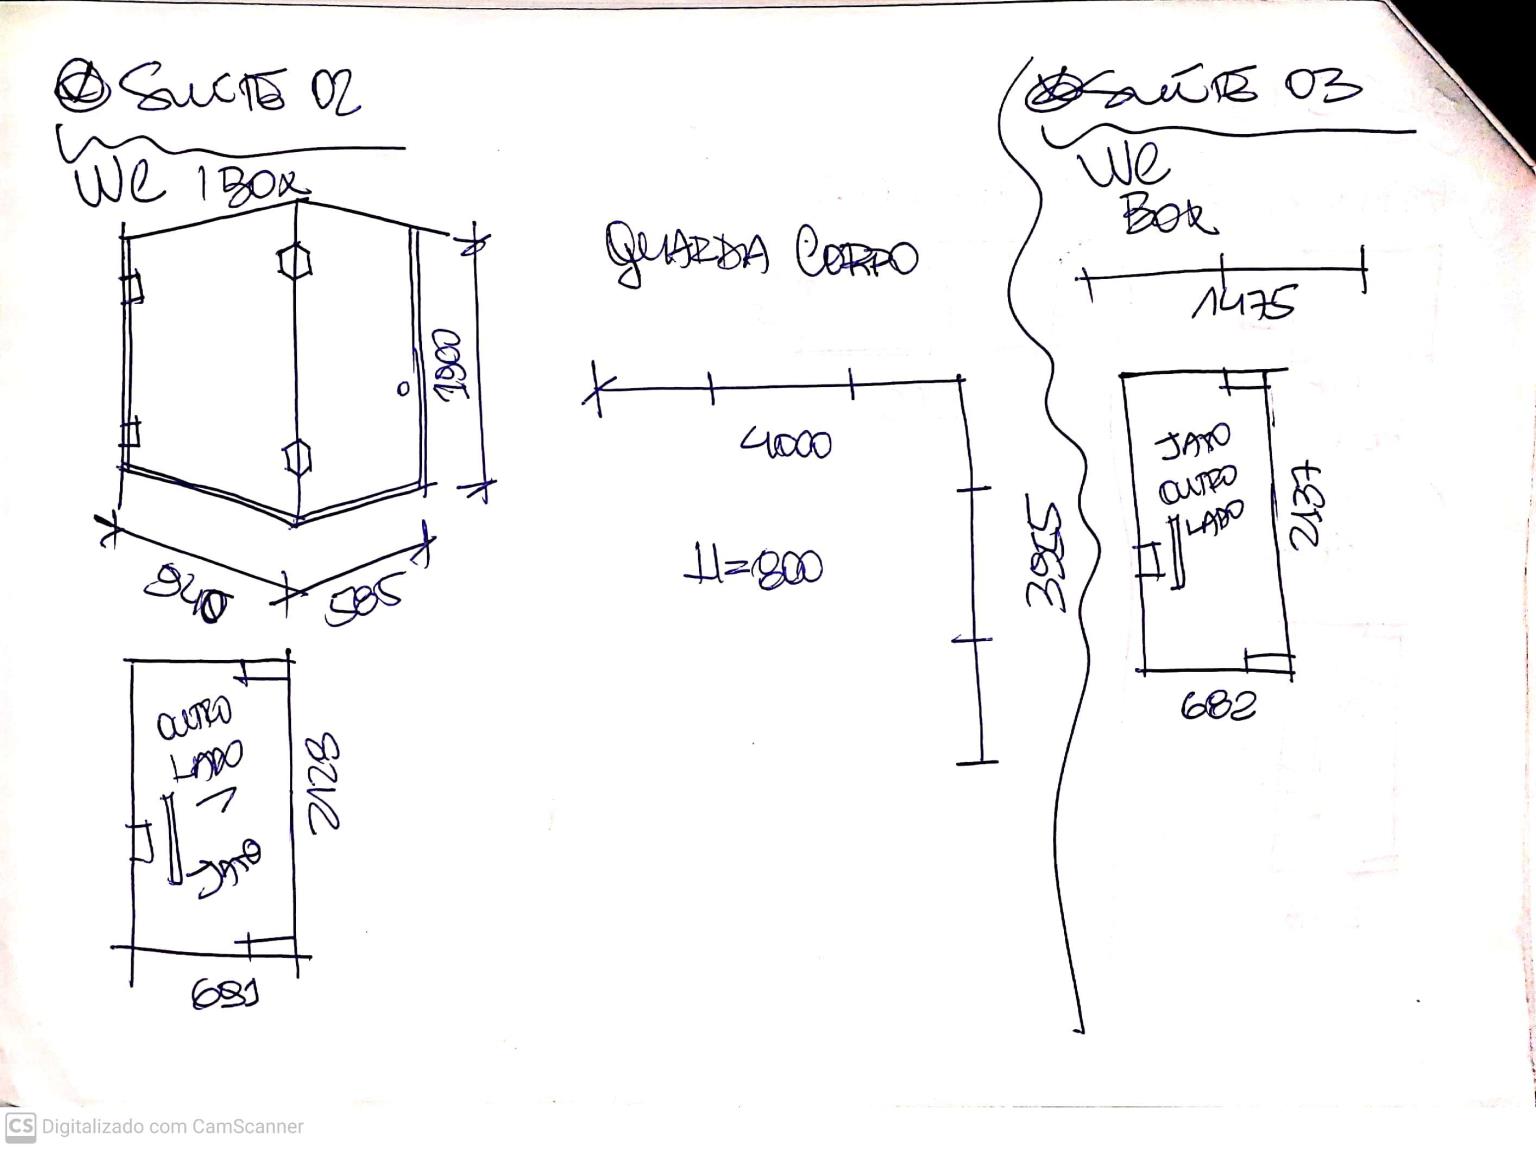 SUITE 02
WC 1 BOX
1900
940
585
OUTRO
LADO
JATO
2128
691
GUARDA CORPO
4000
H=800
3955
SUÍTE 03
WC
BOX
1475
JATO
OUTRO
LADO
2137
682
CS Digitalizado com CamScanner